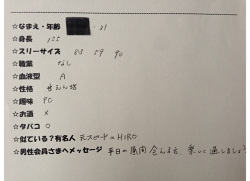 ☆なまえ・年齢 21
☆身長 155
☆スリーサイズ 83 59 90
☆職業 なし
☆血液型 A
☆性格 甘えん坊
☆趣味 PC
☆お酒 ×
☆タバコ ○
☆似ている？有名人 元スピードのHIRO
☆男性会員さまへメッセージ 平日の昼間 会える方 楽しく過しましょう